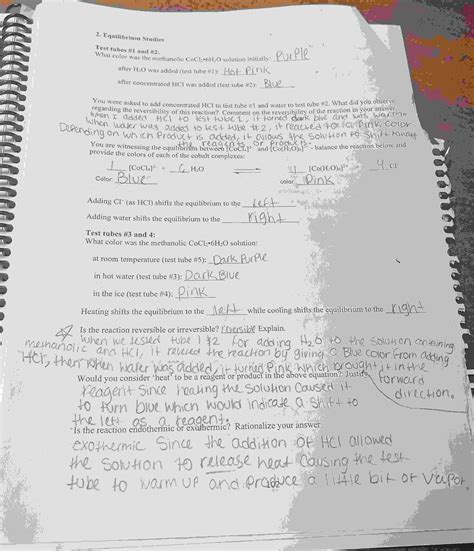 2. Equilibrium Studies
Test tubes #1 and #2:
What color was the methanolic CoCl₂•6H₂O solution initially? Purple
after H₂O was added (test tube #1): Hot Pink
after concentrated HCl was added (test tube #2): Blue
You were asked to add concentrated HCl to test tube #1 and water to test tube #2. What did you observe
regarding the reversibility of this reaction? Comment on the reversibility of the reaction in your answer.
When I added HCl to test tube 1, it turned dark blue and was warm.
When water was added to test tube #2, it reacted to a pink color
Depending on which Product is added, it allows the solution to shift toward
the reagents or products.
You are witnessing the equilibrium between [CoCl₄]²⁻ and [Co(H₂O)₆]²⁺ - balance the reaction below and
provide the colors of each of the cobalt complexes:
1 [CoCl₄]²⁻ + 6 H₂O ⇌ 1 [Co(H₂O)₆]²⁺ 4 Cl⁻
Color: Blue color Pink
Adding Cl⁻ (as HCl) shifts the equilibrium to the left
Adding water shifts the equilibrium to the right
Test tubes #3 and 4:
What color was the methanolic CoCl₂•6H₂O solution:
at room temperature (test tube #5): Dark Purple
in hot water (test tube #3): Dark Blue
in the ice (test tube #4): Pink
Heating shifts the equilibrium to the left while cooling shifts the equilibrium to the right
Is the reaction reversible or irreversible? reversible Explain.
When we tested tube 1 & 2 for adding H₂O to the solution containing
methanolic and HCl, it revered the reaction by giving a Blue color from adding
HCl, then when water was added, it turned Pink which brought it in the
forward
direction.
Would you consider "heat" to be a reagent or product in the above equation? Justify
Reagent since heating the solution caused it
to turn blue which would indicate a shift to
the left as a reagent.
Is the reaction endothermic or exothermic? Rationalize your answer
exothermic since the addition of HCl allowed
the solution to release heat causing the test
tube to warm up and produce a little bit of vapor.